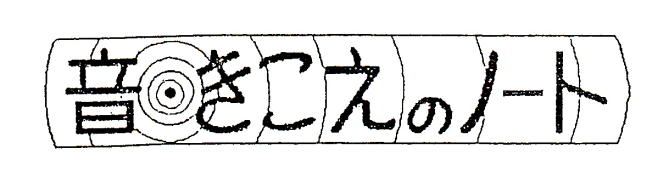 音きこえのノート